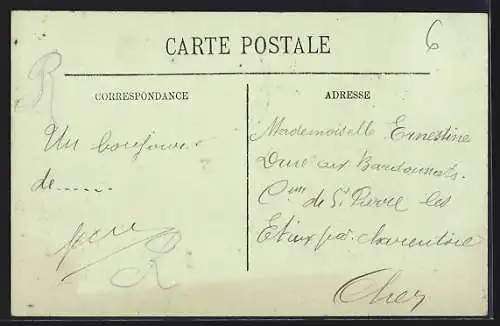 CARTE POSTALE
6
R
CORRESPONDANCE
Un bonjour
de......
R
ADRESSE
Mademoiselle Ernestine
aux
Cne de St Pierre les
Etieux par Charenton
Cher